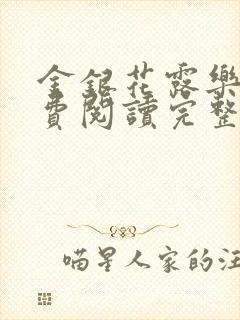 金銀花露樂
費閱讀完整
喵星人家的汪